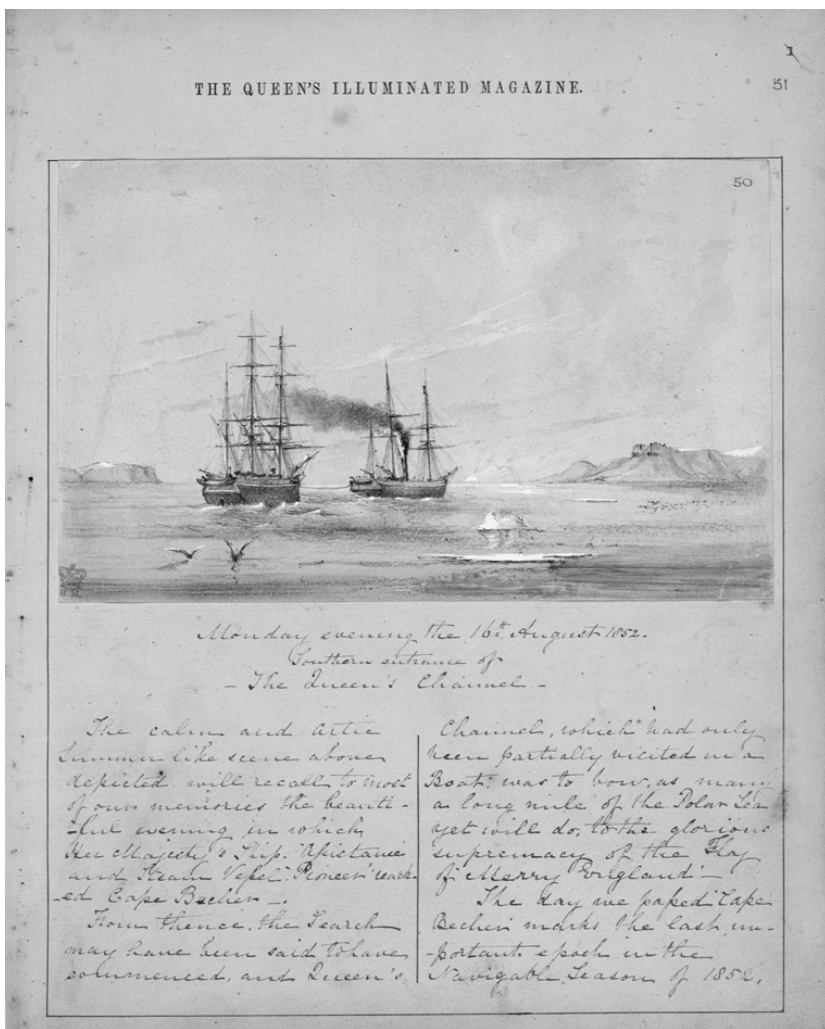 1
THE QUEEN'S ILLUMINATED MAGAZINE.
51
50
Monday evening the 16th August 1852.
Southern entrance of
- The Queen's Channel -
The calm and Artic
Summer like scene above
depicted will recall to most
of our memories the beauti-
-ful evening in which
Her Majesty's Ship "Assistance
and Steam Vessel "Pioneer" reach-
-ed Cape Becher -.
From thence, the Search
may have been said to have
commenced, and Queen's
Channel, which had only
been partially visited in a
Boat, was to bow, as many
a long mile of the Polar Sea
yet will do, to the glorious
supremacy of the Flag
of "Merry England" -
The day we passed "Cape
Becher" marks the last im-
-portant epoch in the
Navigable Season of 1852.